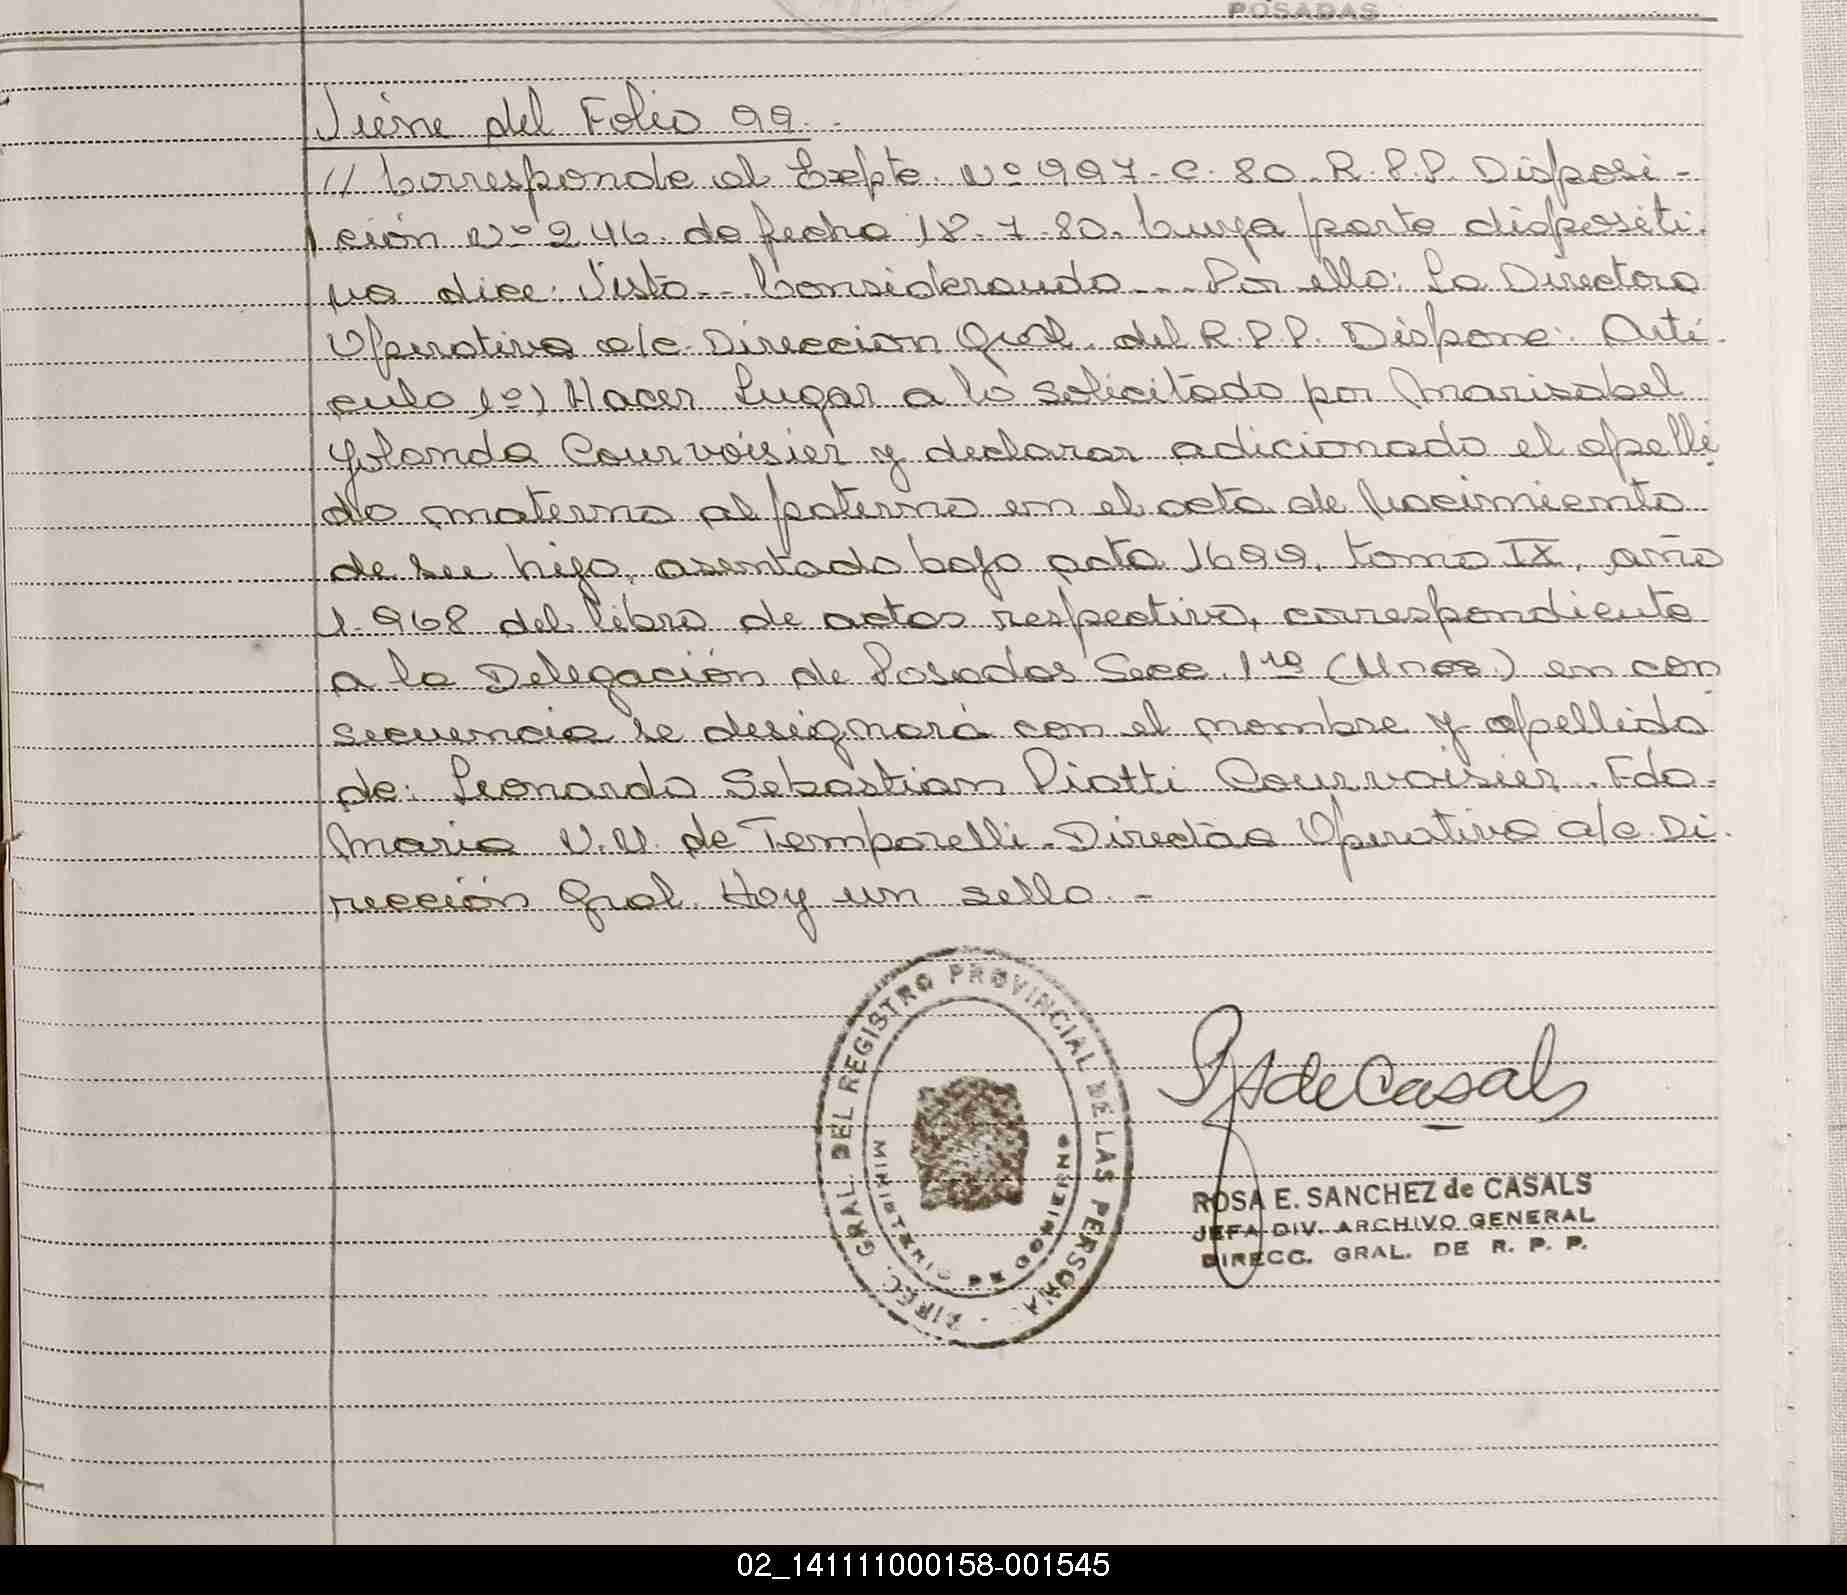 POSADAS
Viene del Folio 99.-
// Corresponde al Expte. Nº 997-C-80-R.P.P. Disposi-
ción Nº 246 de fecha 18-7-80. Cuya parte dispositi-
va dice: Visto - - Considerando - - Por ello: La Directora
Operativa a/c Direccion Gral. del R.P.P. Dispone: Artí-
culo 1º) Hacer Lugar a lo solicitado por Marisabel
Yolanda Courvoisier y declarar adicionado el apelli
do materno al paterno en el acta de Nacimiento
de su hijo, asentado bajo acta 1699, tomo IX, año
1.968 del libro de actas respectivo, correspondiente
a la Delegación de Posadas Secc. 1ra (Unos) en con
secuencia se designará con el nombre y apellido
de: Leonardo Sebastian Piatti Courvoisier. Fdo-
Maria V.V. de Temporelli - Directóra Operativa a/c Di-
rección Gral. Hay un sello.-
DIREC. GRAL. DEL REGISTRO PROVINCIAL DE LAS PERSONA.
MINISTERIO DE GOBIERNO
de Casals
ROSA E. SANCHEZ de CASALS
JEFA DIV. ARCHIVO GENERAL
DIRECC. GRAL. DE R. P. P.
02_141111000158-001545